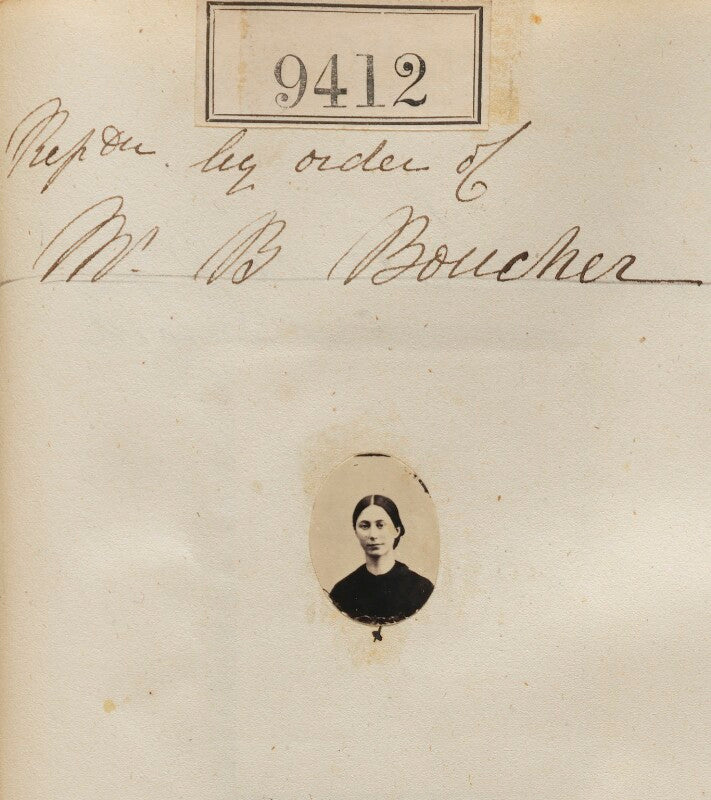 9412
Repdn. by order of
Mr B Boucher